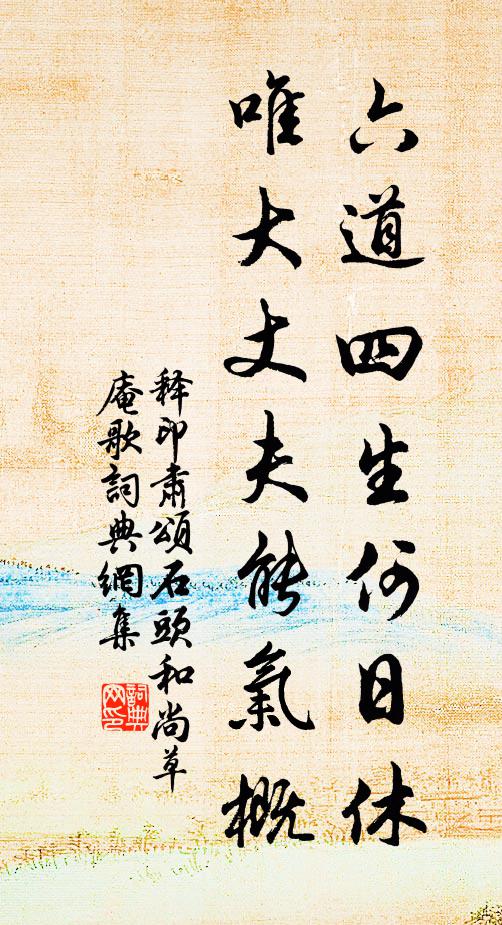 六道四生何日休
唯大丈夫能氣概
釋印肅頌石頭和尚草
庵歌詞典網集
詞典
网印